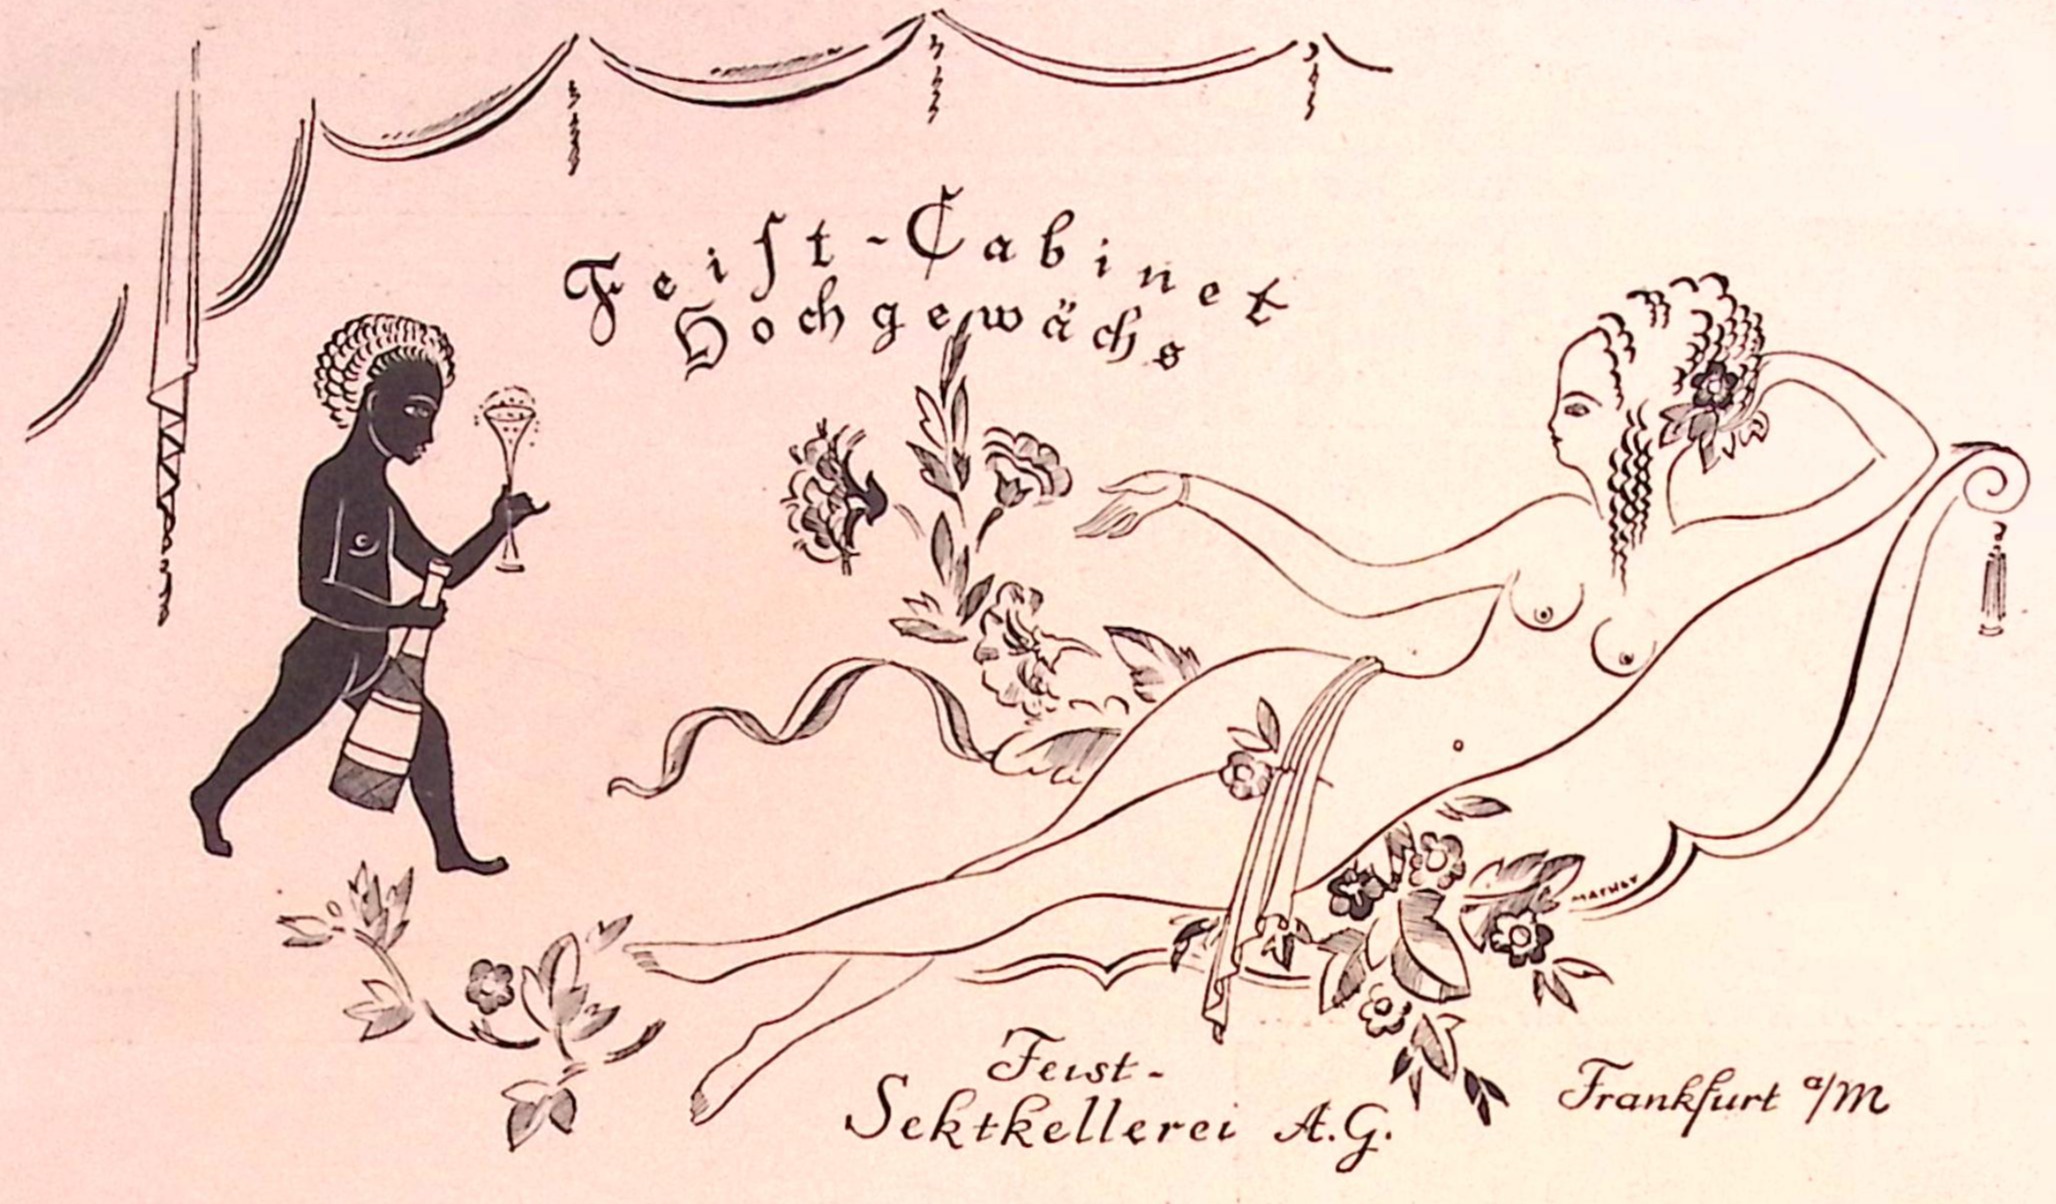 Feiſt-Cabinet
Hochgewächs
MATHEY
Feist-
Sektkellerei A.G.
Frankfurt a/M